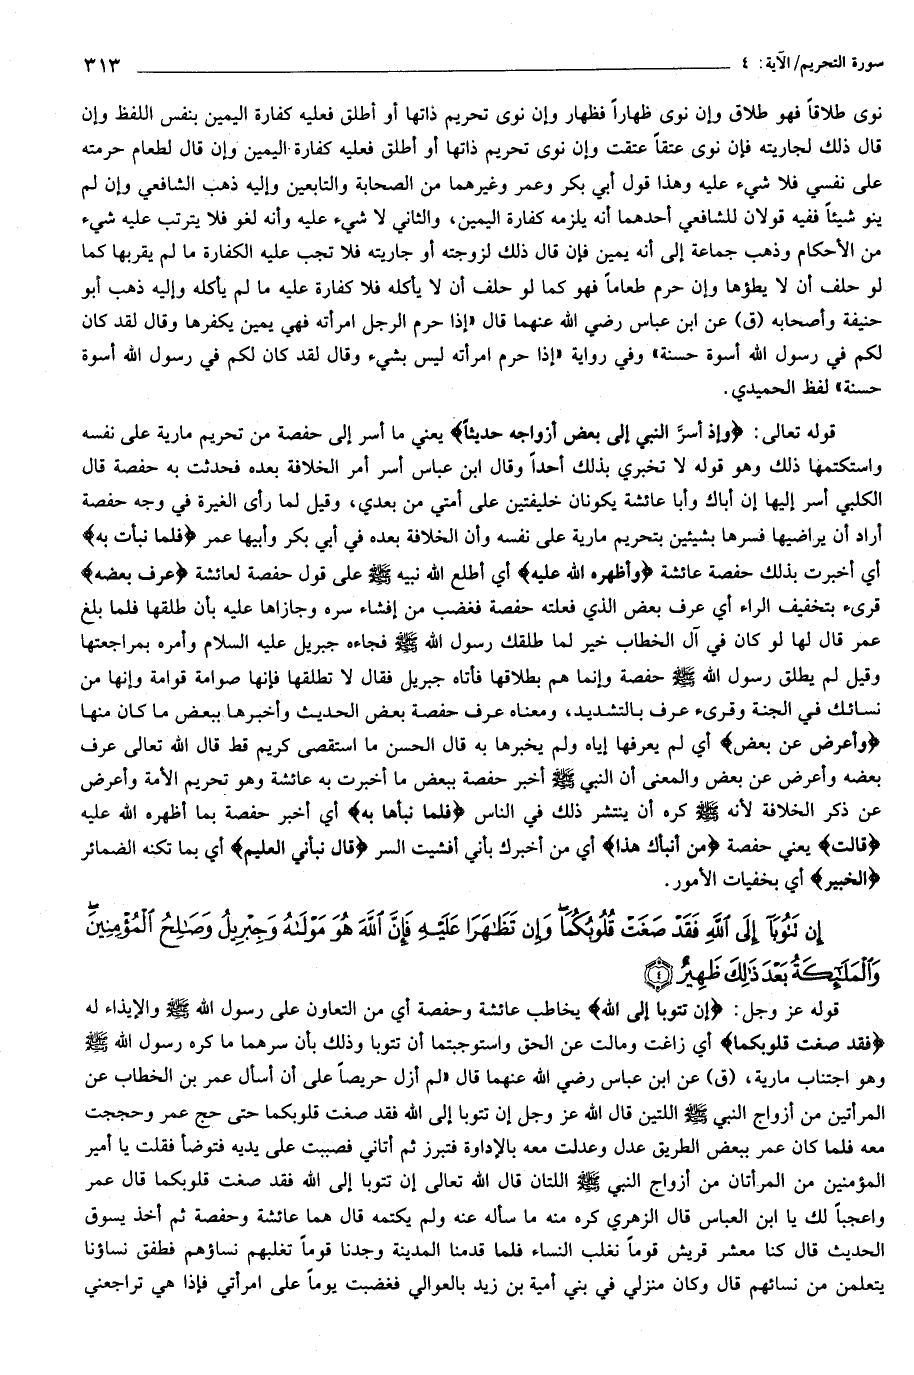 سورة التحريم/ الآية: ٤ ٣١٣
نوى طلاقاً فهو طلاق وإن نوى ظهاراً فظهار وإن نوى تحريم ذاتها أو أطلق فعليه كفارة اليمين بنفس اللفظ وإن
قال ذلك لجاريته فإن نوى عتقاً عتقت وإن نوى تحريم ذاتها أو أطلق فعليه كفارة اليمين وإن قال لطعام حرمته
على نفسي فلا شيء عليه وهذا قول أبي بكر وعمر وغيرهما من الصحابة والتابعين وإليه ذهب الشافعي وإن لم
ينو شيئاً ففيه قولان للشافعي أحدهما أنه يلزمه كفارة اليمين، والثاني لا شيء عليه وأنه لغو فلا يترتب عليه شيء
من الأحكام وذهب جماعة إلى أنه يمين فإن قال ذلك لزوجته أو جاريته فلا تجب عليه الكفارة ما لم يقربها كما
لو حلف أن لا يطؤها وإن حرم طعاماً فهو كما لو حلف أن لا يأكله فلا كفارة عليه ما لم يأكله وإليه ذهب أبو
حنيفة وأصحابه (ق) عن ابن عباس رضي الله عنهما قال «إذا حرم الرجل امرأته فهي يمين يكفرها وقال لقد كان
لكم في رسول الله أسوة حسنة» وفي رواية «إذا حرم امرأته ليس بشيء وقال لقد كان لكم في رسول الله أسوة
حسنة» لفظ الحميدي.
قوله تعالى: ﴿وإذ أسرَّ النبي إلى بعض أزواجه حديثاً﴾ يعني ما أسر إلى حفصة من تحريم مارية على نفسه
واستكتمها ذلك وهو قوله لا تخبري بذلك أحداً وقال ابن عباس أسر أمر الخلافة بعده فحدثت به حفصة قال
الكلبي أسر إليها إن أباك وأبا عائشة يكونان خليفتين على أمتي من بعدي، وقيل لما رأى الغيرة في وجه حفصة
أراد أن يراضيها فسرها بشيئين بتحريم مارية على نفسه وأن الخلافة بعده في أبي بكر وأبيها عمر ﴿فلما نبأت به﴾
أي أخبرت بذلك حفصة عائشة ﴿وأظهره الله عليه﴾ أي أطلع الله نبيه ﷺ على قول حفصة لعائشة ﴿عرف بعضه﴾
قرىء بتخفيف الراء أي عرف بعض الذي فعلته حفصة فغضب من إفشاء سره وجازاها عليه بأن طلقها فلما بلغ
عمر قال لها لو كان في آل الخطاب خير لما طلقك رسول الله ﷺ فجاءه جبريل عليه السلام وأمره بمراجعتها
وقيل لم يطلق رسول الله ﷺ حفصة وإنما هم بطلاقها فأتاه جبريل فقال لا تطلقها فإنها صوامة قوامة وإنها من
نسائك في الجنة وقرىء عرف بالتشديد، ومعناه عرف حفصة بعض الحديث وأخبرها ببعض ما كان منها
﴿وأعرض عن بعض﴾ أي لم يعرفها إياه ولم يخبرها به قال الحسن ما استقصى كريم قط قال الله تعالى عرف
بعضه وأعرض عن بعض والمعنى أن النبي ﷺ أخبر حفصة ببعض ما أخبرت به عائشة وهو تحريم الأمة وأعرض
عن ذكر الخلافة لأنه ﷺ كره أن ينتشر ذلك في الناس ﴿فلما نبأها به﴾ أي أخبر حفصة بما أظهره الله عليه
﴿قالت﴾ يعني حفصة ﴿من أنبأك هذا﴾ أي من أخبرك بأني أفشيت السر ﴿قال نبأني العليم﴾ أي بما تكنه الضمائر
﴿الخبير﴾ أي بخفيات الأمور.
إِن تَتُوبَآ إِلَى ٱللَّهِ فَقَدْ صَغَتْ قُلُوبُكُمَاۖ وَإِن تَظَـٰهَرَا عَلَيْهِ فَإِنَّ ٱللَّهَ هُوَ مَوْلَىٰهُ وَجِبْرِيلُ وَصَـٰلِحُ ٱلْمُؤْمِنِينَۖ
وَٱلْمَلَـٰٓئِكَةُ بَعْدَ ذَٰلِكَ ظَهِيرٌ ﴿٤﴾
قوله عز وجل: ﴿إن تتوبا إلى الله﴾ يخاطب عائشة وحفصة أي من التعاون على رسول الله ﷺ والإيذاء له
﴿فقد صغت قلوبكما﴾ أي زاغت ومالت عن الحق واستوجبتما أن تتوبا وذلك بأن سرهما ما كره رسول الله ﷺ
وهو اجتناب مارية، (ق) عن ابن عباس رضي الله عنهما قال «لم أزل حريصاً على أن أسأل عمر بن الخطاب عن
المرأتين من أزواج النبي ﷺ اللتين قال الله عز وجل إن تتوبا إلى الله فقد صغت قلوبكما حتى حج عمر وحججت
معه فلما كان عمر ببعض الطريق عدل وعدلت معه بالإداوة فتبرز ثم أتاني فصببت على يديه فتوضأ فقلت يا أمير
المؤمنين من المرأتان من أزواج النبي ﷺ اللتان قال الله تعالى إن تتوبا إلى الله فقد صغت قلوبكما قال عمر
واعجباً لك يا ابن العباس قال الزهري كره منه ما سأله عنه ولم يكتمه قال هما عائشة وحفصة ثم أخذ يسوق
الحديث قال كنا معشر قريش قوماً نغلب النساء فلما قدمنا المدينة وجدنا قوماً تغلبهم نساؤهم فطفق نساؤنا
يتعلمن من نسائهم قال وكان منزلي في بني أمية بن زيد بالعوالي فغضبت يوماً على امرأتي فإذا هي تراجعني